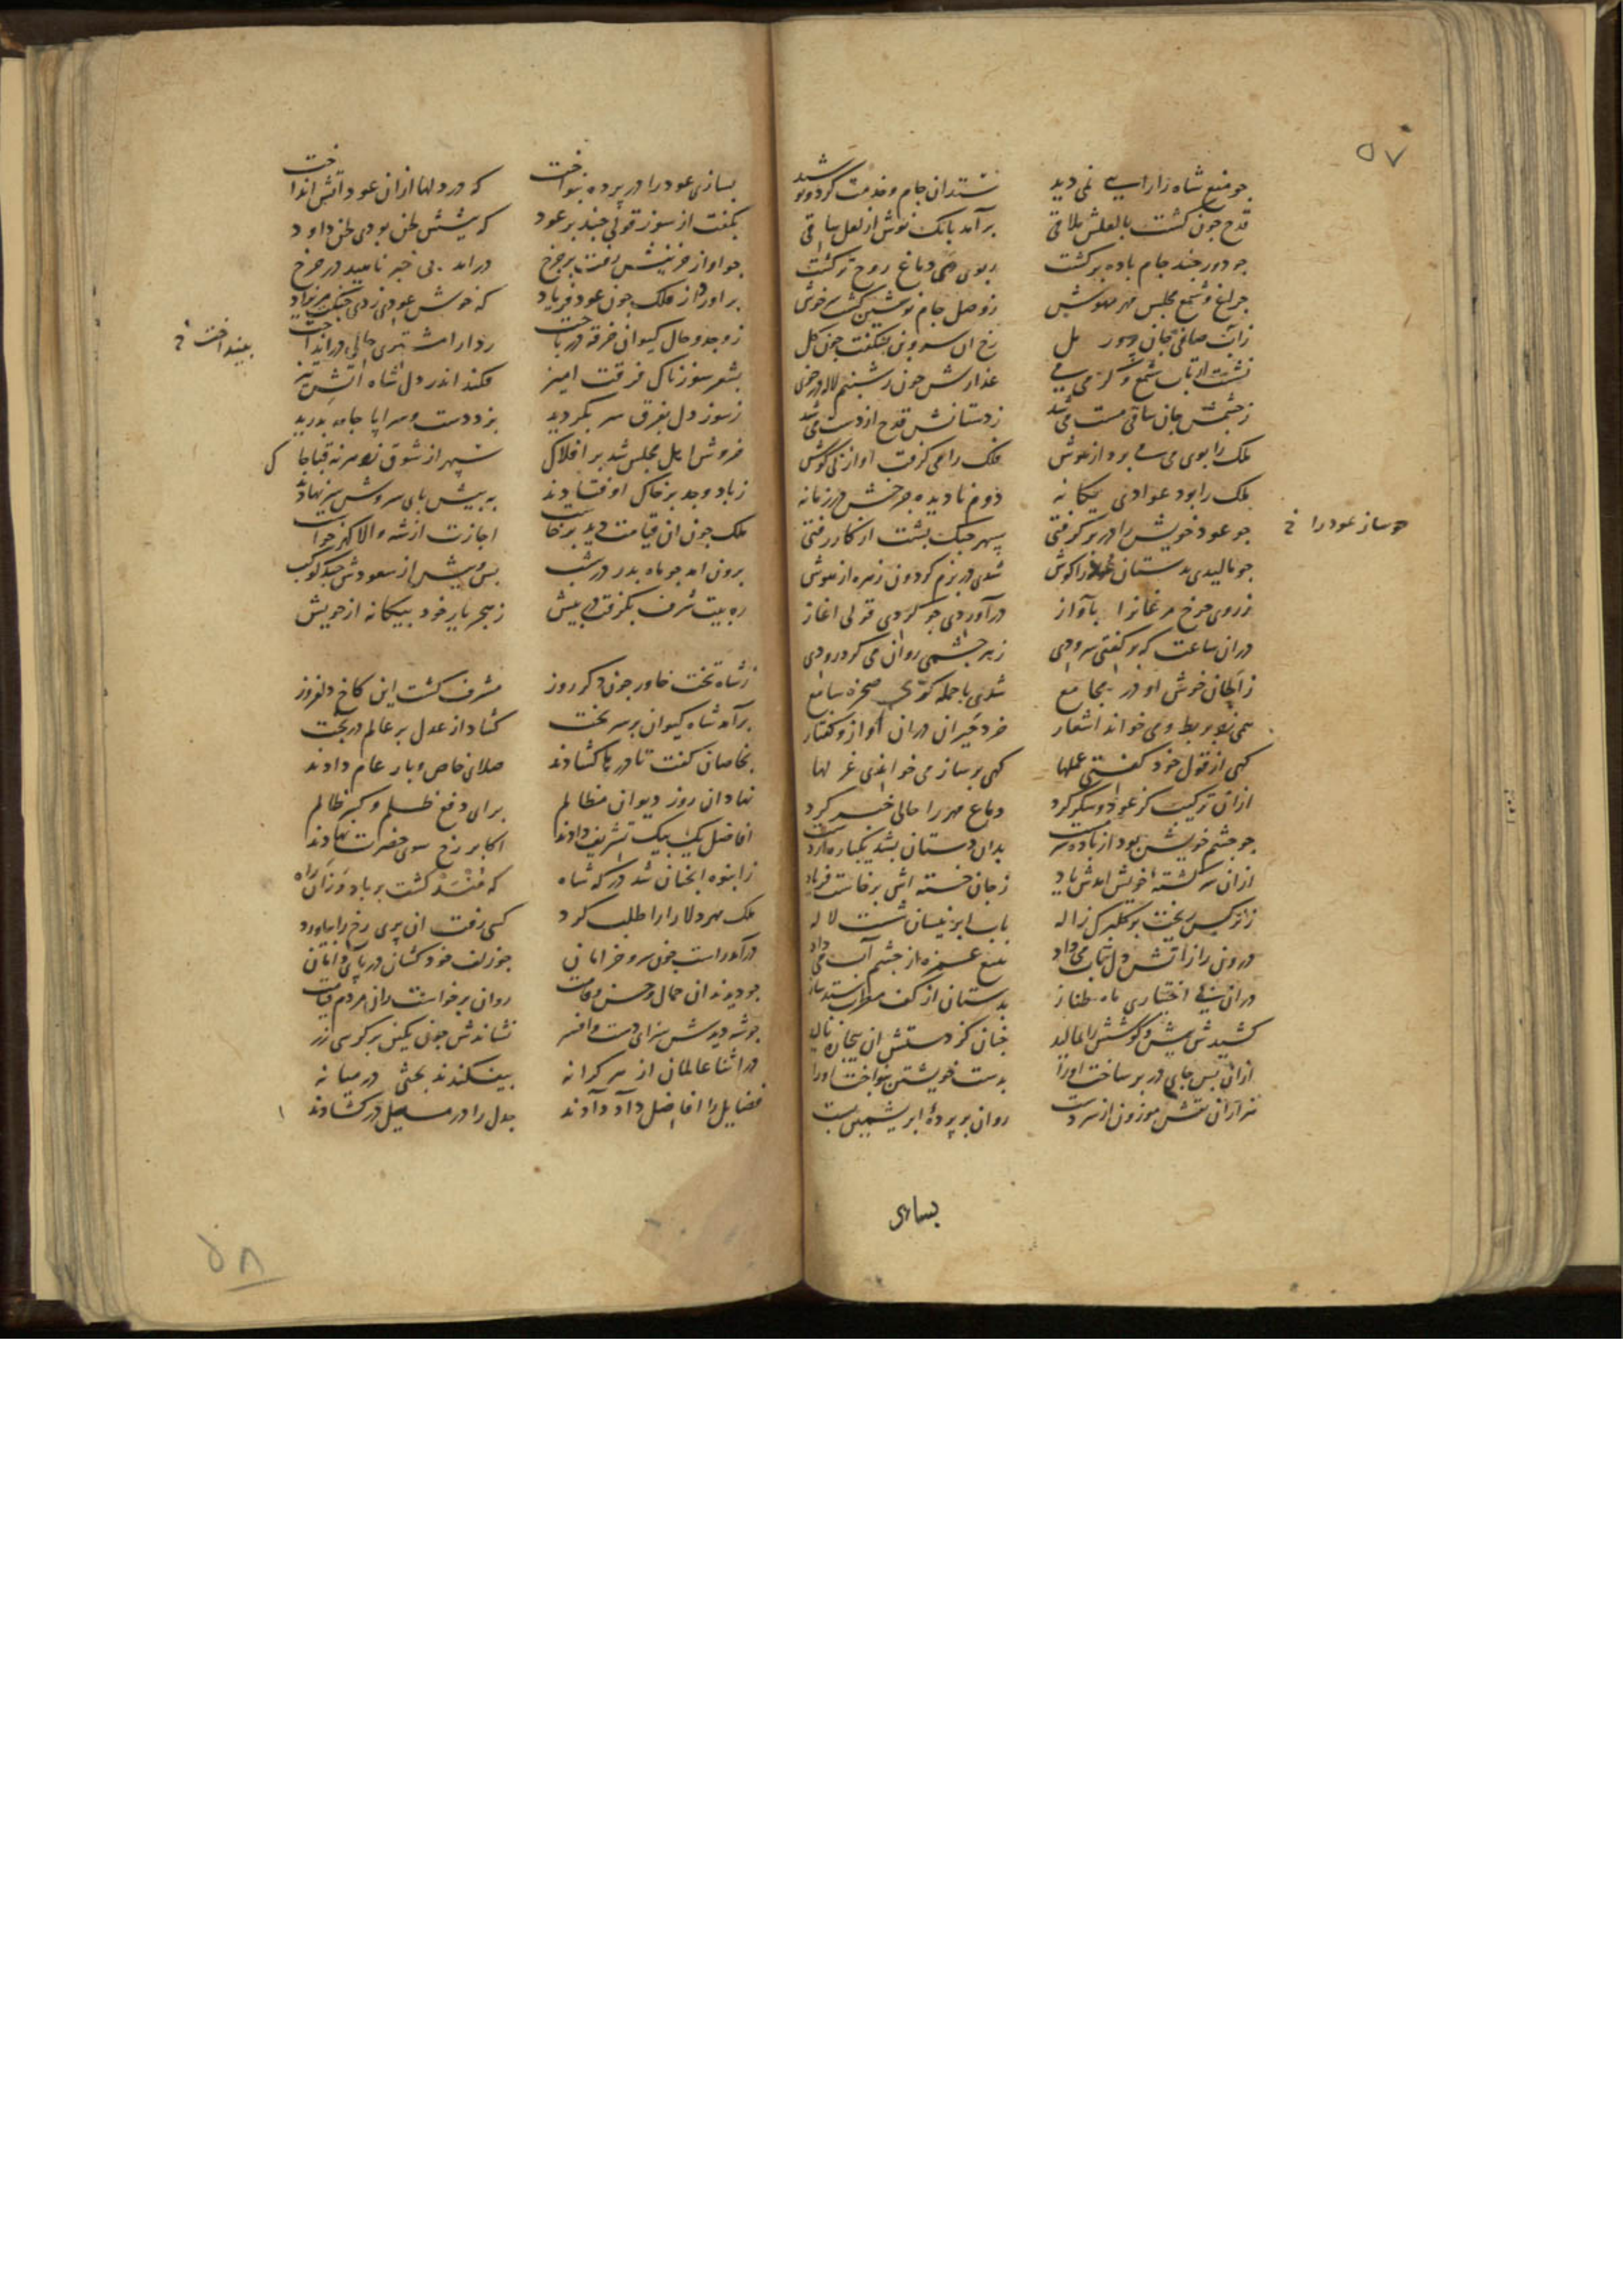 ۵۷
چو منع شاه زارا سے نمی دید ستد ان جام و خدمت کرد و نوشید
قدح چون کشت بالعلش ملاقی برآمد بانک نوش از لعل ساقی
چو دور چند جام باده برکشت ربوی می دماغ روح ترکشت
چراغ و شمع مجلس مهر مهوش ز وصل جام نوشین کشت سرخوش
زاب صافی جان رخ ان سرو بن بشکفت چون کل
نشست از تاب شمع و کرمی می عذارش چون ز شبنم لاله در خوی
ز چشمش جان ساقی مست می شد ز دستانش قدح از دست می شد
ملک را بوی می می برد از هوش فلک را می کرفت اواز نی کوش
ملک را بود عوادی یکانه دوم نادیده چرخش در زمانه
چو عود خویش را در بر کرفتی سپهر چنک پشت از کار رفتی
چو مالیدی بدستان عود را کوش شدی در بزم کردون زهره از هوش
ز روی چرخ مرغانرا بآواز درآوردی چو کردی قولی اغاز
دران ساعت که بر کفتی سرودی ز هر چشمی روان می کرد رودی
ز الحان خوش او در مجامع شدی با جمله کوی صخره سامع
همی زد بربط و می خواند اشعار خرد حیران دران آواز و کفتار
کهی از قول خود کفتی عملها کهی بر ساز می خواندی غزلها
ازان ترکیب کز عود و شکر کرد دماغ مهر را حالی خبر کرد
چو چشم خویشتن بود از باده سرمست بدان دستان بشد یکباره از دست
ازان سرکشته خویش امدش یاد ز جان خسته اش برخاست فریاد
ز نرکس ریخت بر کلبرک ژاله باب ابر نیسان شست لاله
درونی را ز آتش دل تاب می داد بتیغ غمزه از چشم آب می داد
دران بی اختیاری ماه طناز بدستان از کف مطرب ستد ساز
کشیدش پیش و کوشش را بمالید چنان کز دستش ان بیجان بنالید
ازان پس جای در بر ساخت اورا بدست خویشتن بنواخت اورا
هزاران نقش موزون از سر دست روان بر پردهٔ ابریشمین بست
چو ساز عود را خ
بسازی
بسازی عود را در پرده بنواخت که در دلها ازان عود اتش انداخت
بکفت از سوز قولی چند بر عود که پیشش لحن بودی لحن داود
چو اواز حزینش رفت بر چرخ درامد بی خبر ناهید در چرخ
براورد از فلک چون عود فریاد که خوش عودی زدی چنکت مریزاد
ز وجد و حال کیوان خرقه در باخت ردا را مشتری حالی در انداخت
بشعر سوزناک فرقت امیز فکند اندر دل شاه اتش تیز
ز سوز دل بفرق سر بکردید بزد دست و سراپا جامه بدرید
خروش اهل مجلس شد بر افلاک سپهر از شوق زد بر نه قبا چاک
ز باد وجد بر خاک اوفتادند به پیش پای سروش سر نهادند
ملک چون ان قیامت دید برخاست اجازت از شه والا کهر خواست
برون امد چو ماه بدر در شب پس و پیش از سعودش چند کوکب
ره بیت شرف بکرفت در پیش ز هجر یار خود بیکانه از خویش
ز شاه تخت خاور چون دکر روز مشرف کشت این کاخ دلفروز
برآمد شاه کیوان بر سر تخت کشاد از عدل بر عالم در بخت
بخاصان کفت تا درها کشادند صلای خاص و بار عام دادند
نهاد ان روز دیوان مظالم برای دفع ظلم و کبر ظالم
افاضل یک بیک تشریف دادند اکابر رخ سوی حضرت نهادند
ز انبوه انچنان شد درکه شاه که منسد کشت بر باد وزان راه
ملک مهر دلارا را طلب کرد کسی رفت ان پری رخ را بیاورد
درامد راست چون سرو خرامان چو زلف خود کشان در پای دامان
چو دیدند ان جمال و حسن و قامت روان برخواست زان مردم قیامت
چو شه دیدش سزای دست و افسر نشاندش چون نکین بر کرسی زر
در اثنا عالمان از هر کرانه بیفکندند بحثی در میانه
فضایل را افاضل داد دادند جدل را در مسایل در کشادند
بیند اخت خ
۵۸